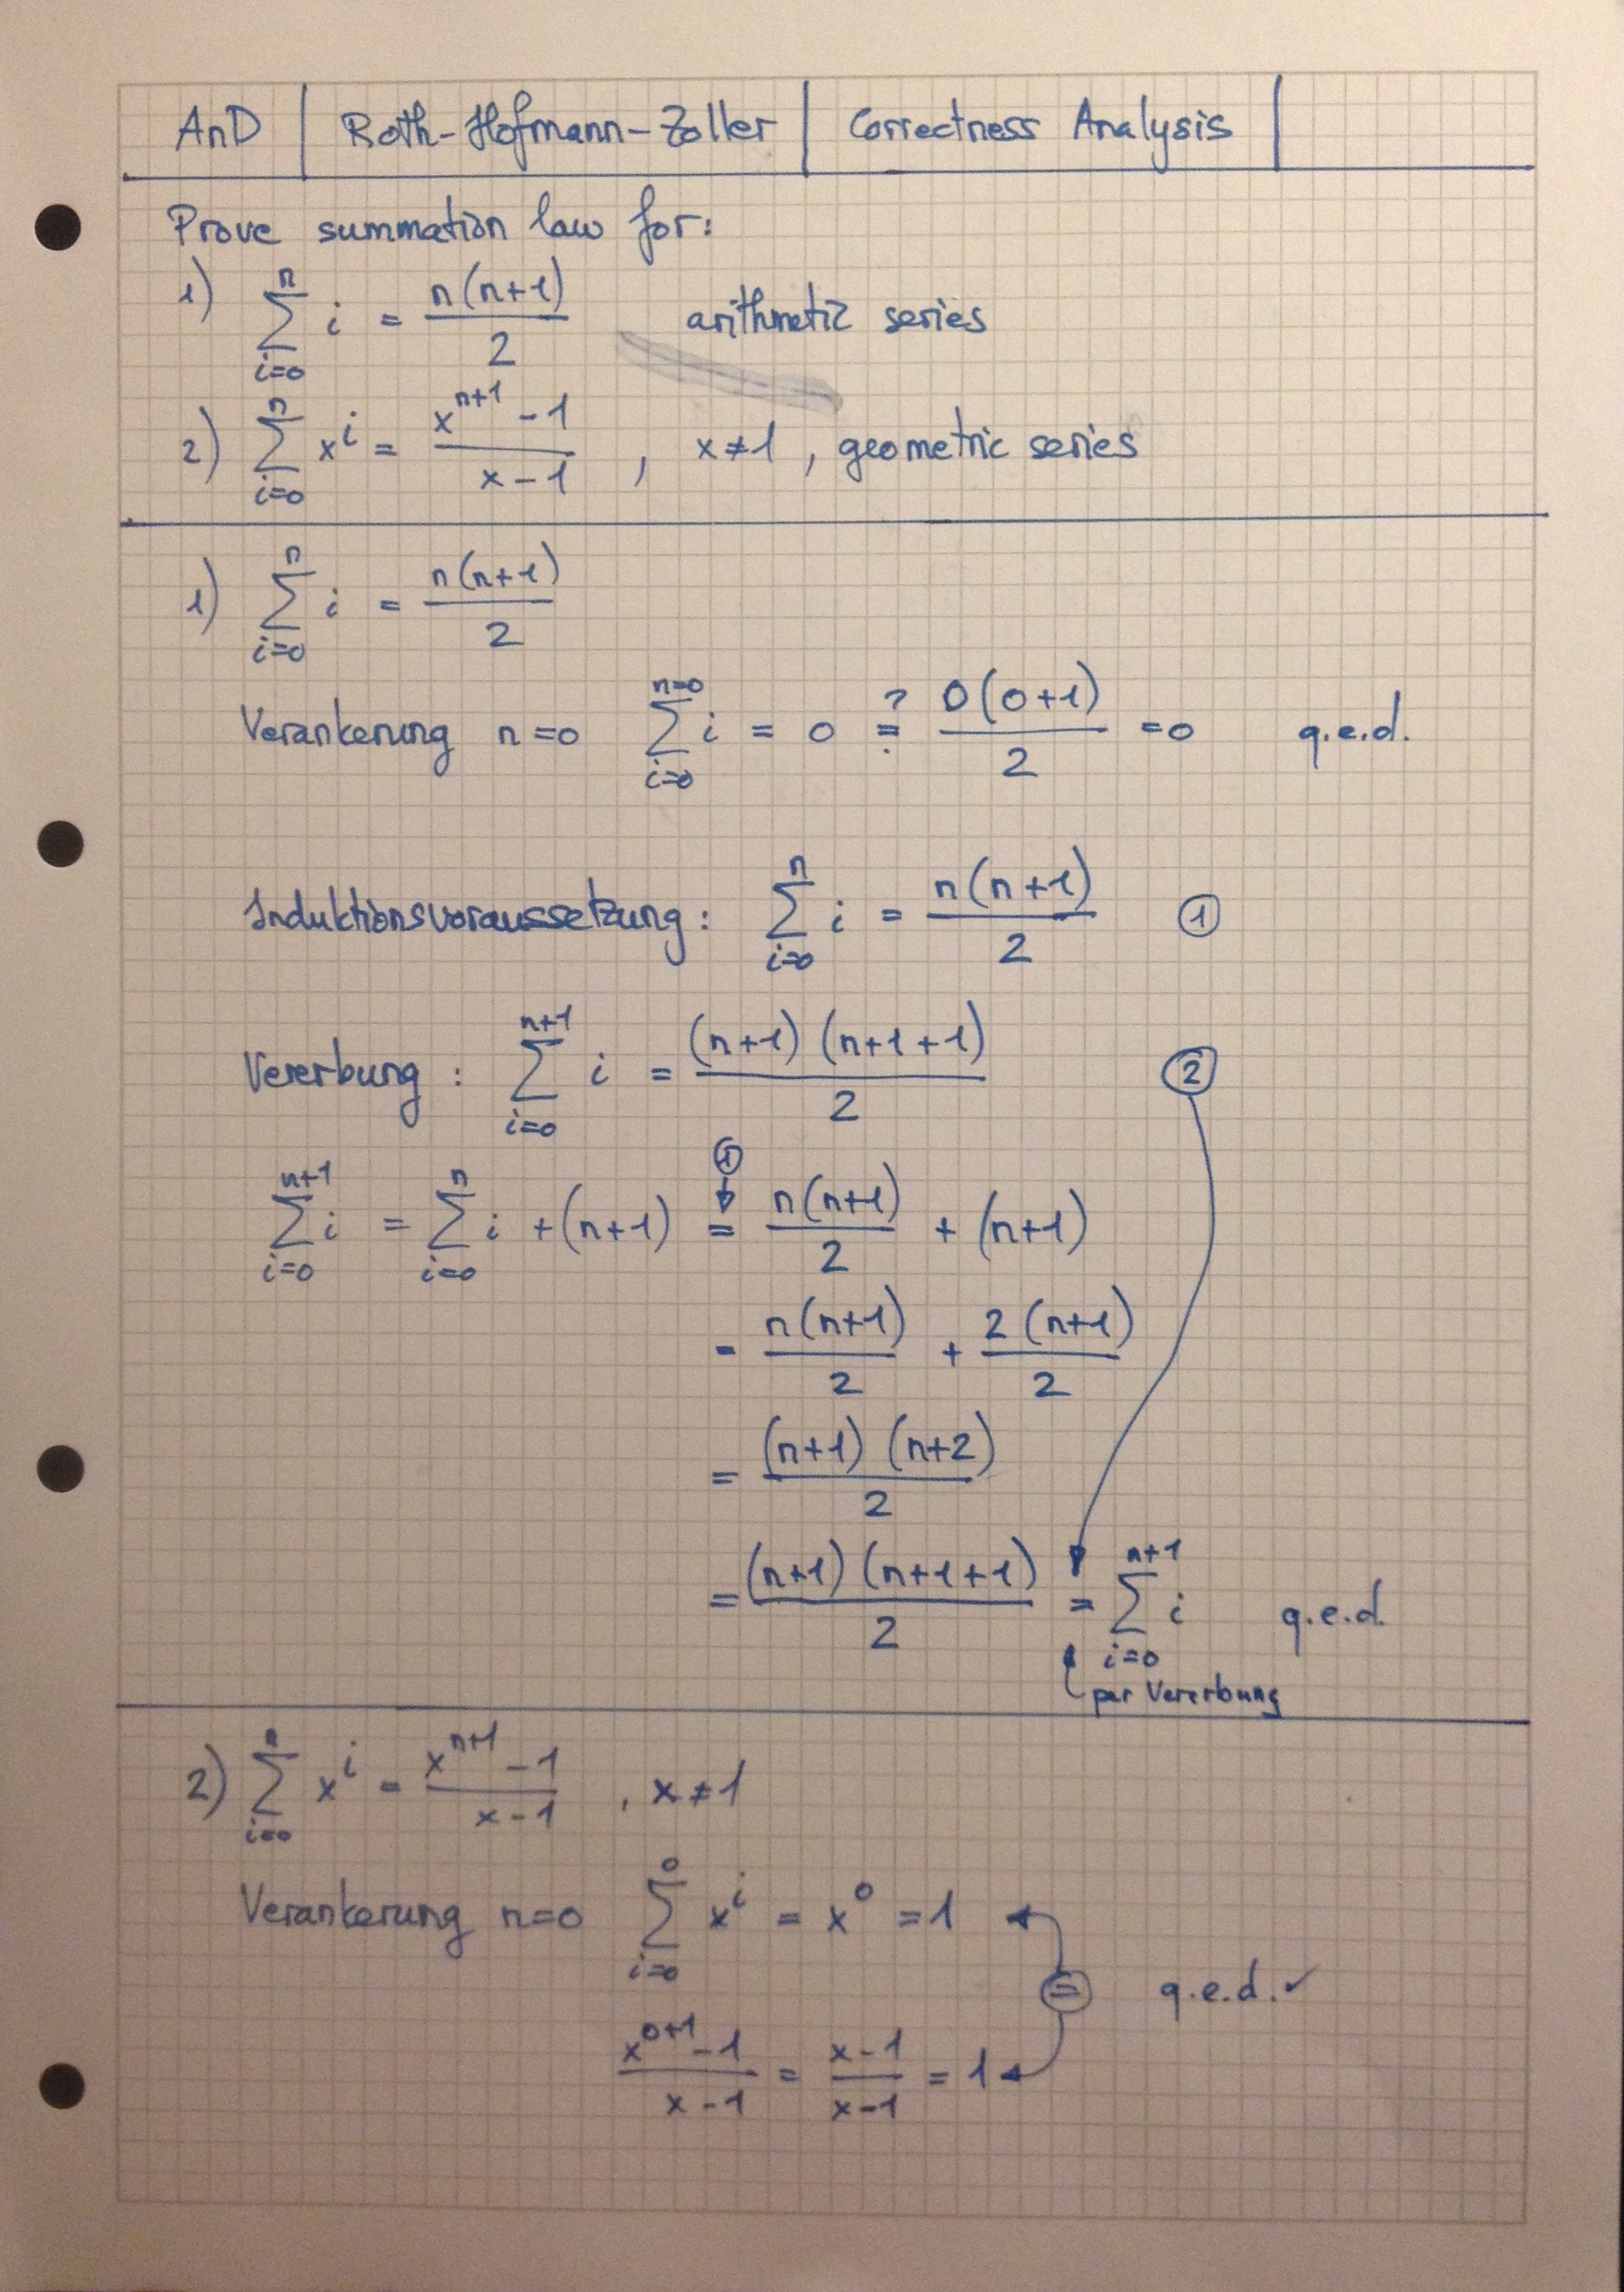 AnD | Roth-Hofmann-Zoller | Correctness Analysis |
Prove summation law for:
1) $\sum_{i=0}^{n} i = \frac{n(n+1)}{2}$ arithmetic series
2) $\sum_{i=0}^{n} x^i = \frac{x^{n+1}-1}{x-1}$ , $x \neq 1$ , geometric series
1) $\sum_{i=0}^{n} i = \frac{n(n+1)}{2}$
Verankerung $n=0$ $\sum_{i=0}^{n=0} i = 0 \overset{?}{=} \frac{0(0+1)}{2} = 0$ q.e.d.
Induktionsvoraussetzung: $\sum_{i=0}^{n} i = \frac{n(n+1)}{2}$ ①
Vererbung: $\sum_{i=0}^{n+1} i = \frac{(n+1)(n+1+1)}{2}$ ②
①
$\sum_{i=0}^{n+1} i = \sum_{i=0}^{n} i + (n+1) = \frac{n(n+1)}{2} + (n+1)$
$= \frac{n(n+1)}{2} + \frac{2(n+1)}{2}$
$= \frac{(n+1)(n+2)}{2}$
$= \frac{(n+1)(n+1+1)}{2} = \sum_{i=0}^{n+1} i$ q.e.d.
per Vererbung
2) $\sum_{i=0}^{n} x^i = \frac{x^{n+1}-1}{x-1}$ , $x \neq 1$
Verankerung $n=0$ $\sum_{i=0}^{0} x^i = x^0 = 1$
= q.e.d. ✓
$\frac{x^{0+1}-1}{x-1} = \frac{x-1}{x-1} = 1$